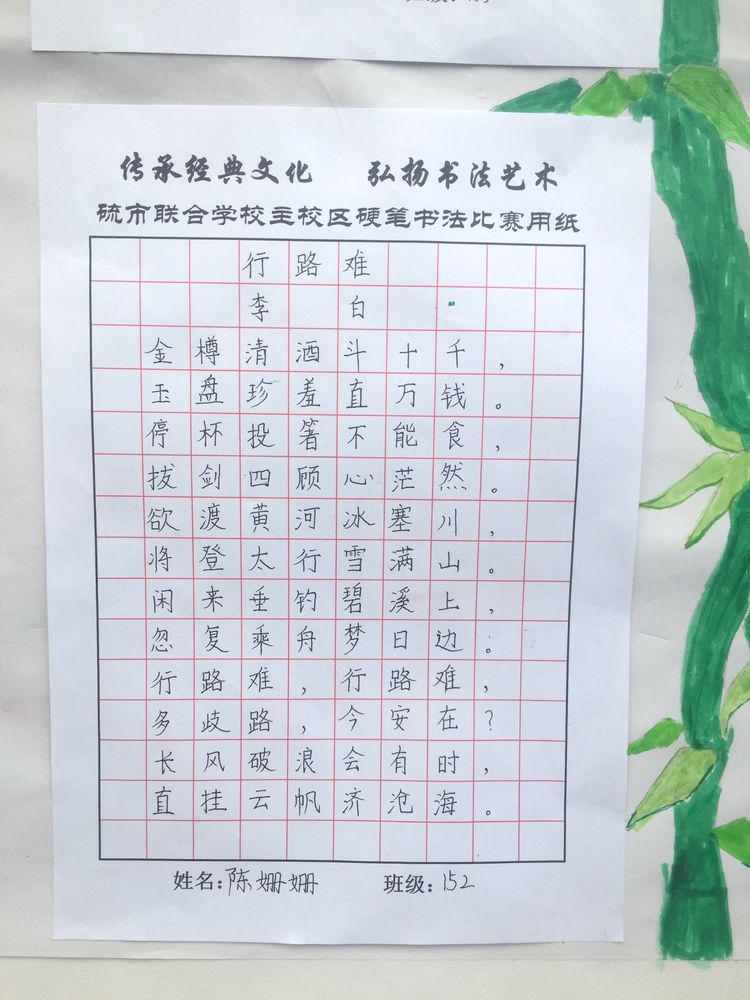 传承经典文化 弘扬书法艺术
硫市联合学校主校区硬笔书法比赛用纸
行路难
李 白
金樽清酒斗十千，
玉盘珍羞直万钱。
停杯投箸不能食，
拔剑四顾心茫然。
欲渡黄河冰塞川，
将登太行雪满山。
闲来垂钓碧溪上，
忽复乘舟梦日边。
行路难，行路难，
多歧路，今安在？
长风破浪会有时，
直挂云帆济沧海。
姓名：陈姗姗 班级：152